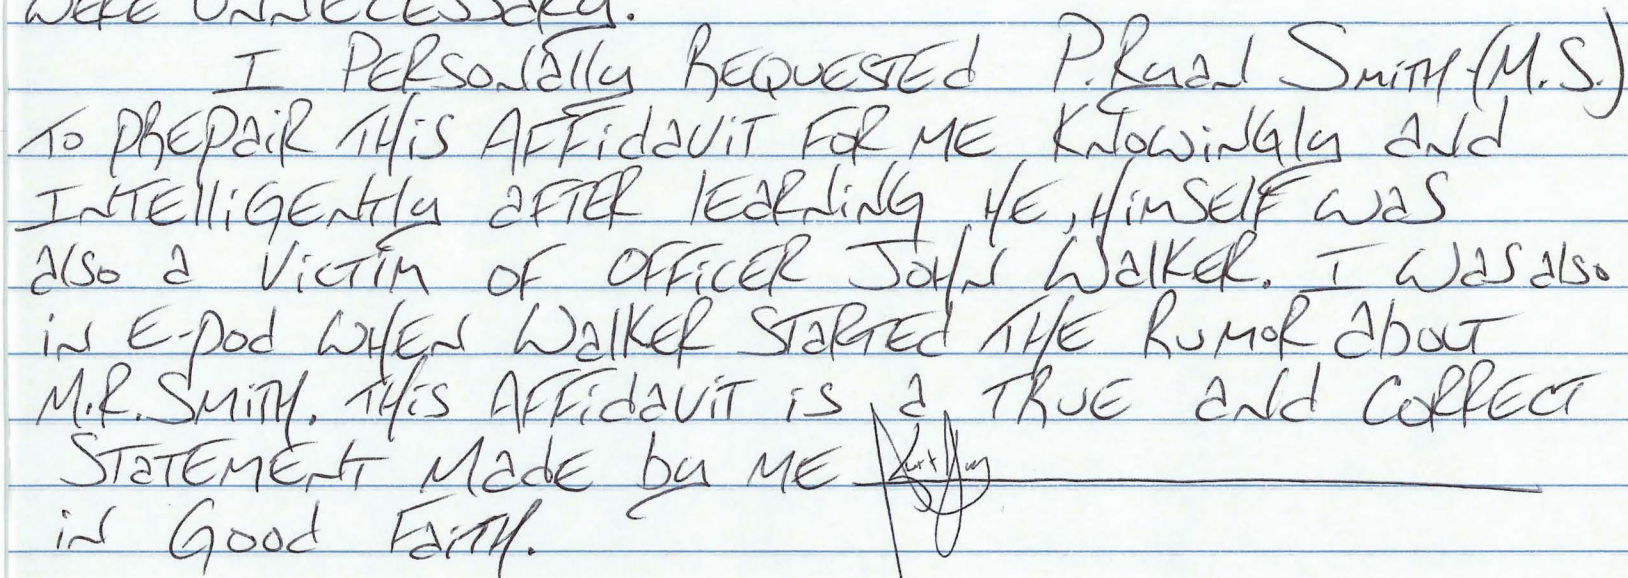 WERE UNNECESSARY.
I PERSONally REQUESTEd P.Ryan SMITH (M.S.)
To PREPaiR THiS AFFidaviT FOR ME KNOWiNGly aNd
INTElliGENtly aFTER lEaRNiNG HE, HiMSElF was
also a VicTiM OF OFFicER JOHN WalKER. I was also
iN E-Pod WHEN WalKER STaRTEd THE RuMOR about
M.R. SMiTH. THiS AFFidaviT is a TRUE aNd CORRECT
STaTEMENt MadE by ME
iN Good FaiTH.